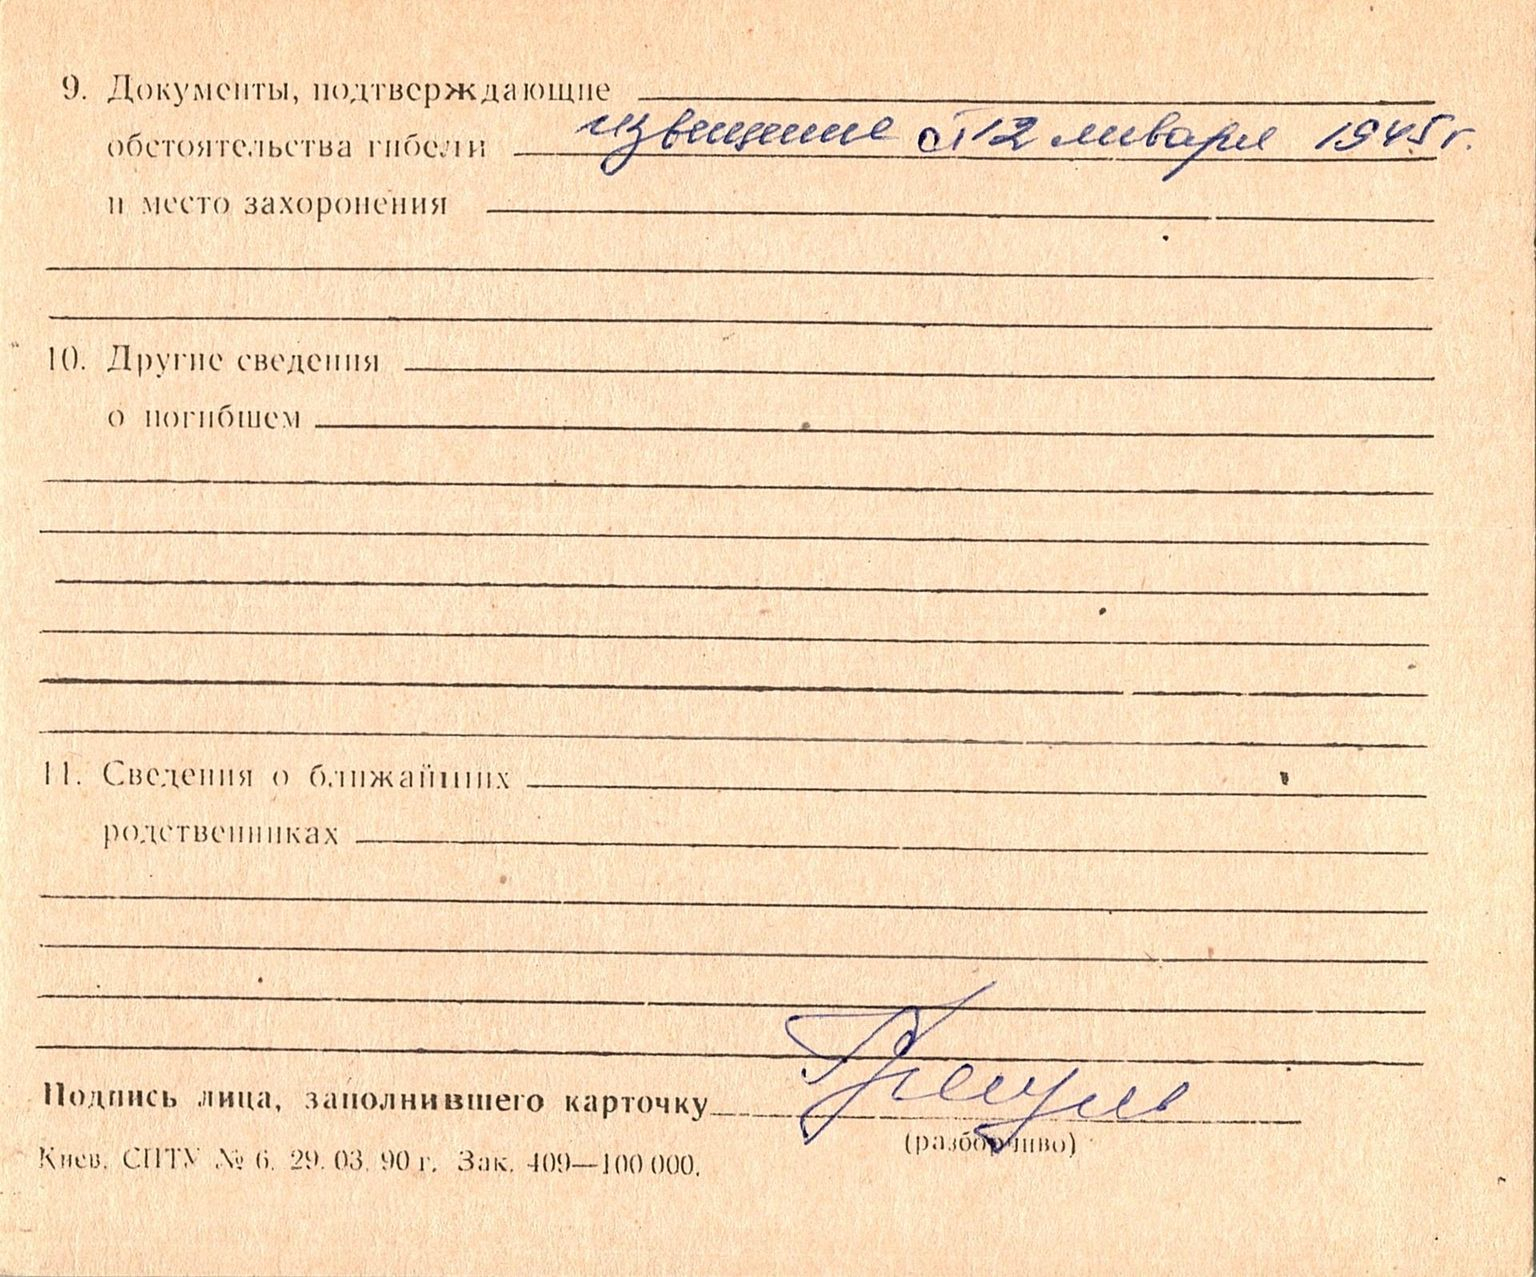 9. Документы, подтверждающие
обстоятельства гибели извещение от 12 января 1945 г.
и место захоронения
10. Другие сведения
о погибшем
11. Сведения о ближайших
родственниках
Подпись лица, заполнившего карточку
(разборчиво)
Киев. СПТУ № 6. 29. 03. 90 г. Зак. 409—100 000.